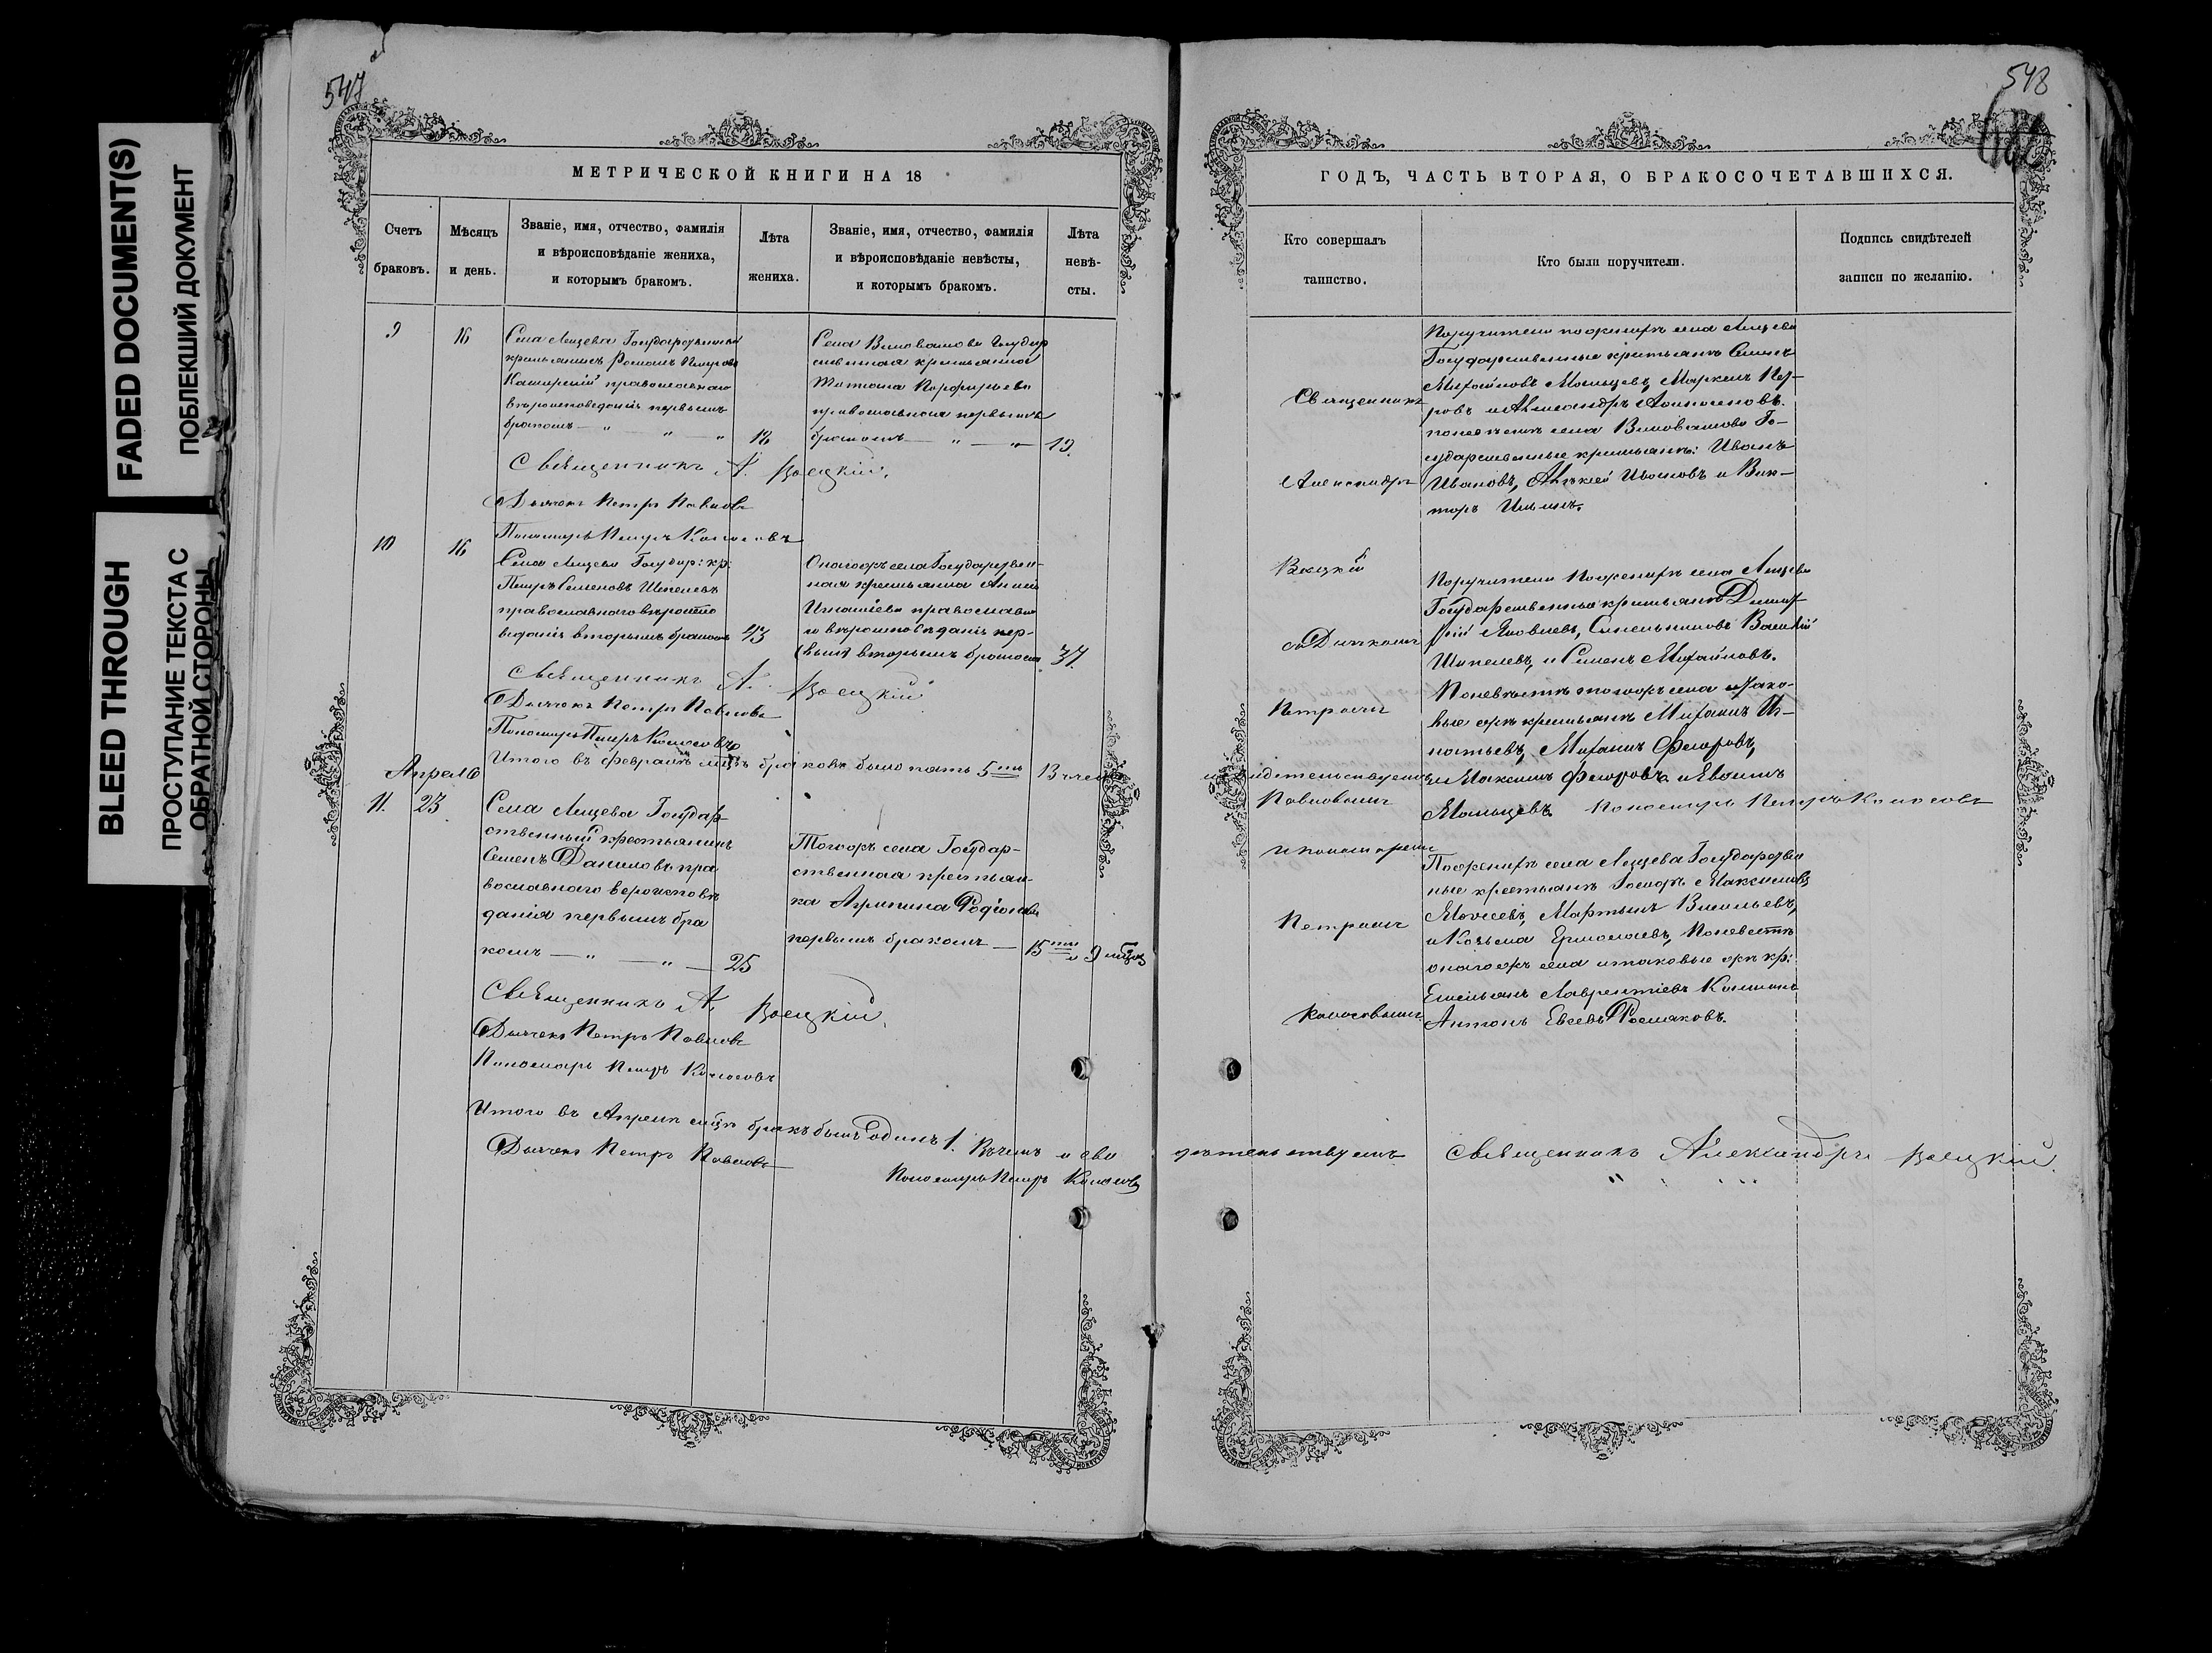 FADED DOCUMENT(S)
ПОБЛЕКШИЙ ДОКУМЕНТ
BLEED THROUGH
ПРОСТУПАНИЕ ТЕКСТА С
ОБРАТНОЙ СТОРОНЫ
547
МЕТРИЧЕСКОЙ КНИГИ НА 18
Счетъ браковъ.
Мѣсяцъ и день.
Званіе, имя, отчество, фамилія
и вѣроисповѣданіе жениха,
и которымъ бракомъ.
Лѣта жениха.
Званіе, имя, отчество, фамилія
и вѣроисповѣданіе невѣсты,
и которымъ бракомъ.
Лѣта невѣ-
сты.
9 16
Села Лещева Государственный
крестьянинъ Романъ Петровъ
православнаго
вѣроисповеданія первымъ
бракомъ — " — " — " 18
Села Виловатова Государ
ственная крестьянка
Татіана Порфирьева
православная первымъ
бракомъ — " — " 19.
Священникъ А. Воецкій.
Дьячекъ Петръ Павловъ
Пономарь Петръ Колосовъ
10 16
Села Лещева Государ: кр:
Петръ Семеновъ Шепелевъ
православнаго вѣроиспо
веданія вторымъ бракомъ 43
Оногожъ села Государствен-
ная крестьянка Анна
Игнатіева православна
го вѣроисповѣданія пер-
вторымъ бракомъ 37.
Священникъ А. Воецкій
Дьячекъ Петръ Павловъ
Пономарь Петръ Колосовъ
Итого въ Февралѣ мцѣ браковъ было пять 5ть В чемъ
Апрель
11. 23
Села Лещева Государ
ственный крестьянинъ
Семенъ Даниловъ пра
вославнаго вероисповѣ
данія первымъ бра
комъ — " — " — 25
Тогожъ села Государ-
ственная крестьян-
ка Агрипина Родіонова
первымъ бракомъ — 15ти 9 мцов
Священникъ А. Воецкій.
Дьячекъ Петръ Павловъ
Пономарь Петръ Колосовъ
Итого въ Апреле мцѣ бракъ былъ одинъ 1. В чемъ и сви
Дьячекъ Петръ Павловъ
Пономарь Петръ Колосовъ
548
ГОДЪ, ЧАСТЬ ВТОРАЯ, О БРАКОСОЧЕТАВШИХСЯ.
Кто совершалъ
таинство.
Кто были поручители.
Подпись свидѣтелей
записи по желанію.
Священникъ
Александръ
Воецкій
съ Дьячкомъ
Петромъ
Павловымъ
и пономаремъ
Петромъ
Колосовымъ
Поручители по женихѣ села Лещева
Государственные крестьяне Семенъ
Михайловъ Мальцевъ, Маркелъ Пет-
ровъ и Александръ
по невѣстѣ села Виловатова Го-
сударственные крестьяне: Иванъ
Ивановъ, Алексѣй Ивановъ и Вик-
торъ Ильинъ.
Поручители по женихѣ села Лещева
Государственные крестьяне Димит
рій Яковлевъ, Синельниковъ Василій
Шепелевъ, и Семенъ Михайловъ.
По невѣстѣ тогожъ села и тако-
выежъ крестьяне Михаилъ Иг-
натьевъ, Михаилъ Федоровъ,
свидетельствуемъ
и Максимъ Федоровъ
Мальцевъ Пономарь Петръ Колосовъ
По женихѣ села Лещева Государствен
ные крестьяне Максимовъ
Моисеевъ, Мартынъ Васильевъ,
и Козьма Ермолаевъ, По невестѣ
оногожъ села и таковые жъ кр:
Емельянъ Лаврентіевъ
Антонъ Евсевъ
дѣтельствуемъ Священникъ Александръ Воецкій.